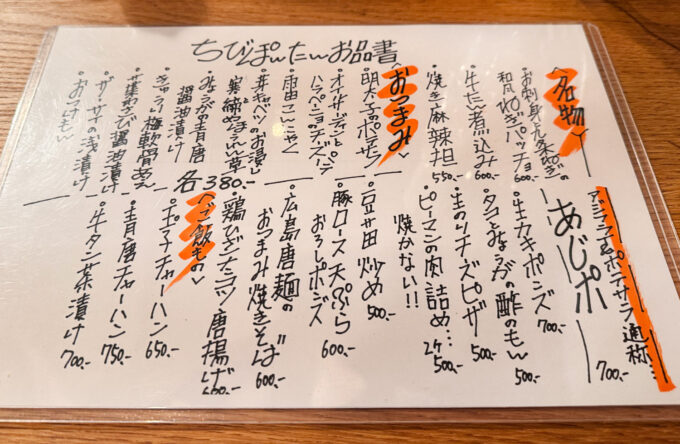 ちびぽんたんお品書
〈名物〉
・お刺身と九条ねぎの
和風ねぎパッチョ 600-
・牛たん煮込み 600-
・焼き麻辣担 550-
〈おつまみ〉
・明太子のポテサラ
・オイルサーディンとパン
・ハラペーニョのチーズ
・雷田こんにゃく
・芽キャベツのお浸し
・実山椒ほうれん草
・みょうがの青唐
醤油漬け
・きゅうり梅軟骨あえ
・茎わさび醤油漬け
・ザーサイの浅漬け
・おつけもん
各380.-
アジフライ&ポテサラ 通称…
あじポ 700.-
・生カキポンズ 700.-
・タコとみょうがの酢のもん 500.-
・生のりチーズピザ 500.-
・ピーマンの肉詰め… 2ケ 500.-
焼かない!!
・豆苗炒め 500.-
・豚ロース天ぷら
おろしポンズ 600.-
・広島唐麺の
おつまみ焼きそば 600.-
・鶏ひざナンコツ唐揚げ 600.-
〈ご飯もの〉
・ポテチャーハン 650.-
・青唐チャーハン 750.-
・牛タン茶漬け 700.-